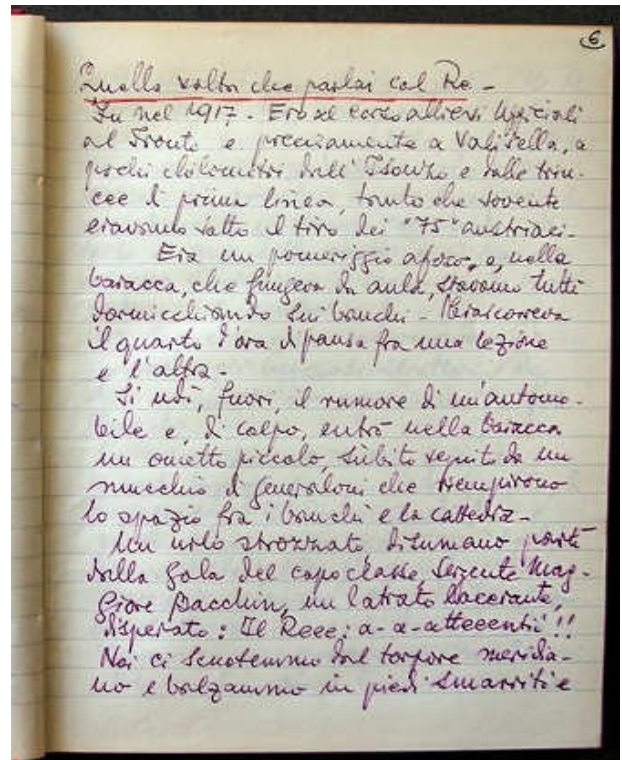 6
Quella volta che parlai col Re -
Fu nel 1917 - Ero al corso allievi Ufficiali
al fronte e precisamente a Valisella, a
pochi chilometri dall' Isonzo e dalle trin-
cee di prima linea, tanto che sovente
eravamo sotto il tiro dei "75" austriaci -
Era un pomeriggio afoso, e, nella
baracca, che fungeva da aula, stavamo tutti
dormicchiando sui banchi - Trascorreva
il quarto d'ora di pausa fra una lezione
e l'altra -
Si udì, fuori, il rumore di un'automo-
bile e, di colpo, entrò nella baracca
un ometto piccolo, subito seguito da un
mucchio di generaloni che riempirono
lo spazio fra i banchi e la cattedra -
Un urlo strozzato, disumano partì
dalla gola del capoclasse, Sergente Mag-
giore Bacchin, un latrato lacerante,
disperato: Il Reee: a-a-atteeenti!!
Noi ci scuotemmo dal torpore meridia-
no e balzammo in piedi smarriti e